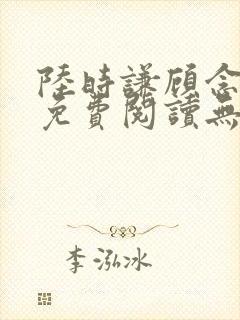 陸時謙顧念
免費閱讀無
李泓冰